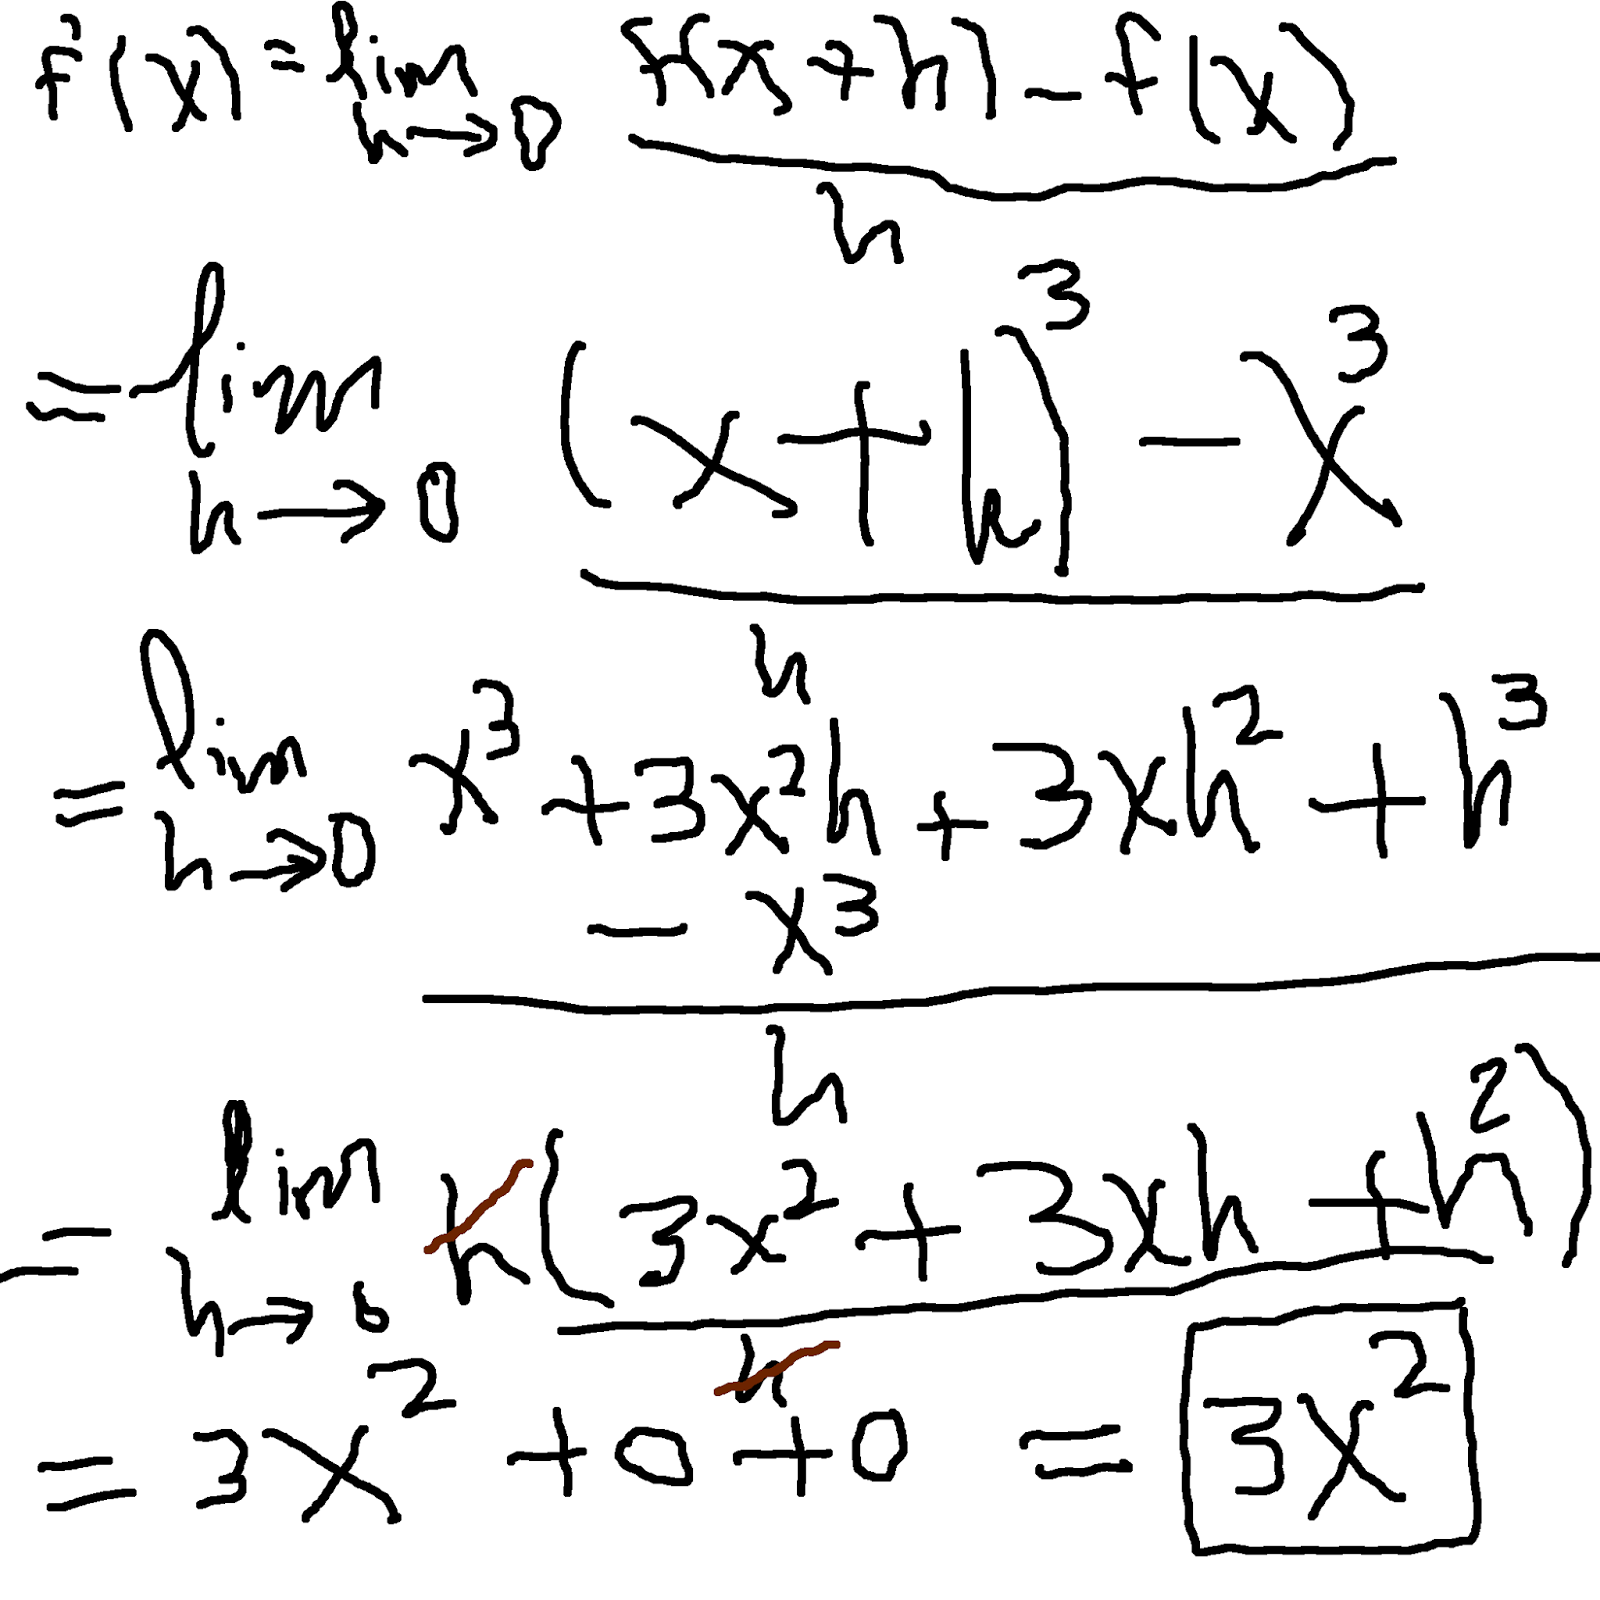 f'(x) = lim h→0 (f(x+h) - f(x)) / h
= lim h→0 ((x+h)³ - x³) / h
= lim h→0 (x³ + 3x²h + 3xh² + h³ - x³) / h
= lim h→0 h(3x² + 3xh + h²) / h
= 3x² + 0 + 0 = 3x²